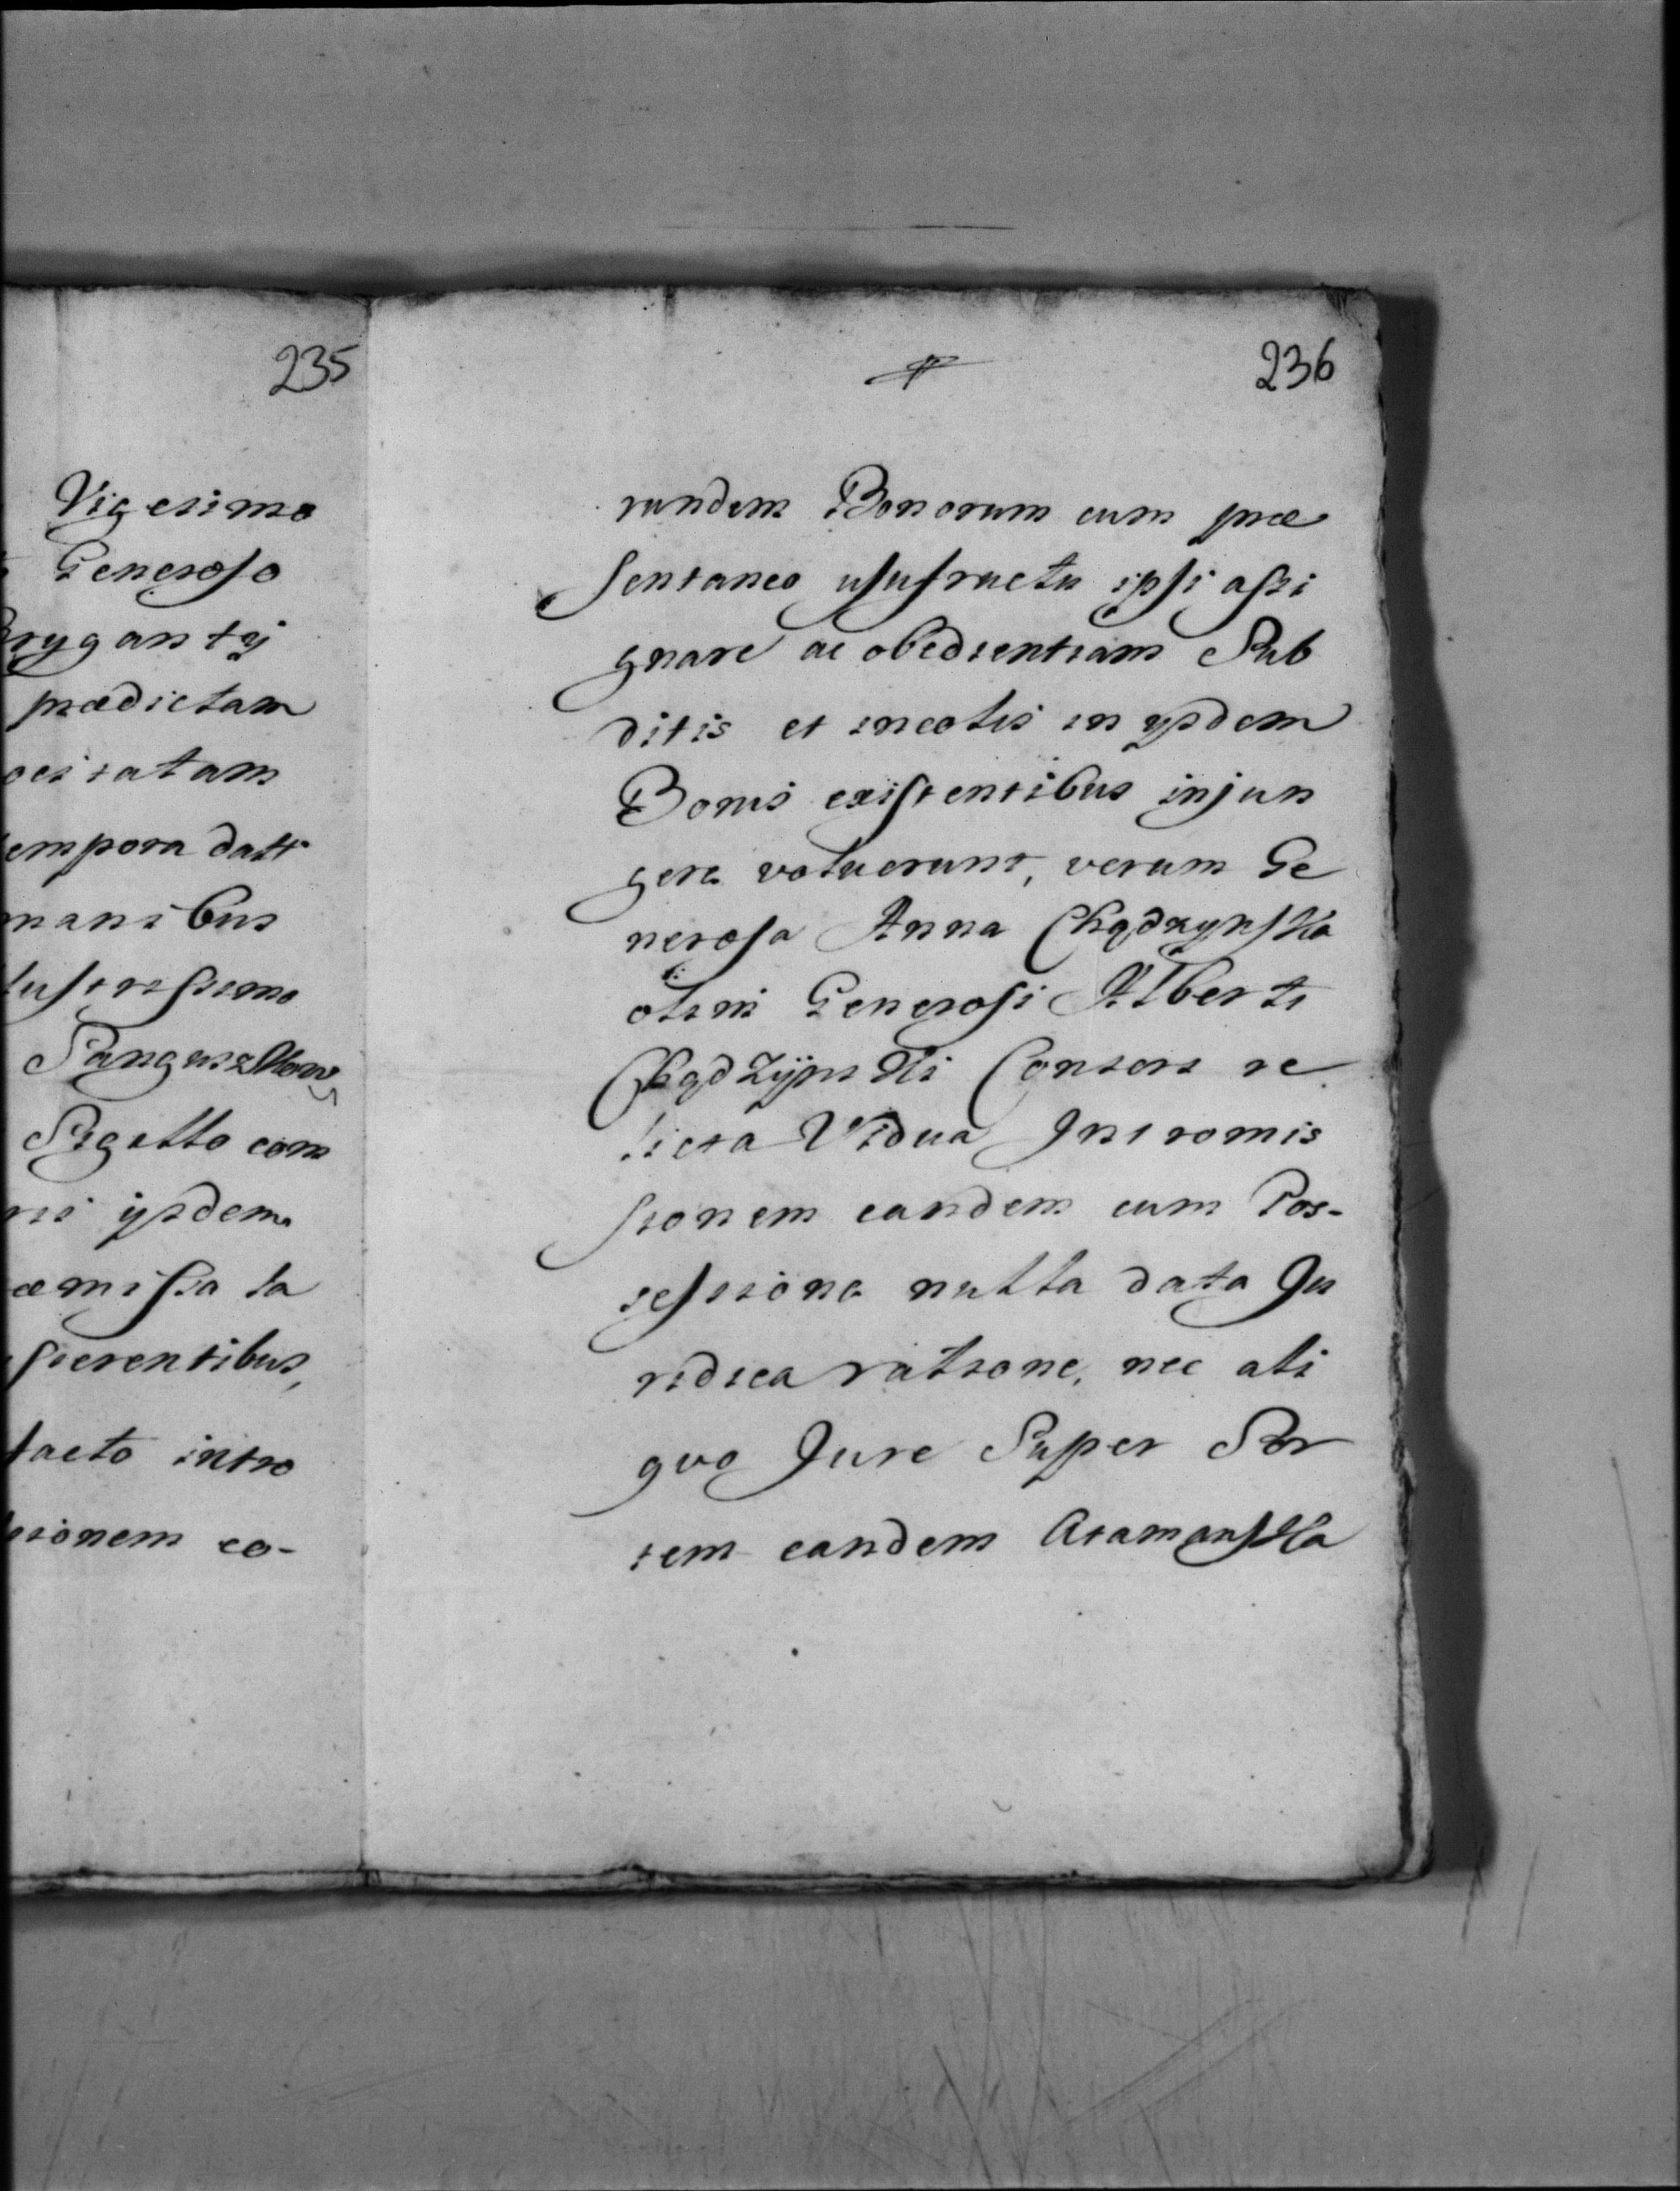 235
Vigesimo
Generoso
Brygantij
prædictam
ocitatam
tempora datt
manibus
lustrissimo
Sanguszkow
Sigillo com
ijsdem
æmissa la
ferentibus,
facto intro
sionem eo-
236
rundem Bonorum cum præ
sentaneo usufructu ipsi assi
gnare ac obedientiam Sub
ditis et incolis in ijsdem
Bonis existentibus injun
gere voluerunt, verum Ge
nerosa Anna Chądzynska
olim Generosi Alberti
Chądzÿnski Consors re
licta Vidua Intromis
sionem eandem cum Pos-
sessione nulla data Ju
ridica ratione, nec ali
quo Jure Super Sor
tem eandem Atamanska